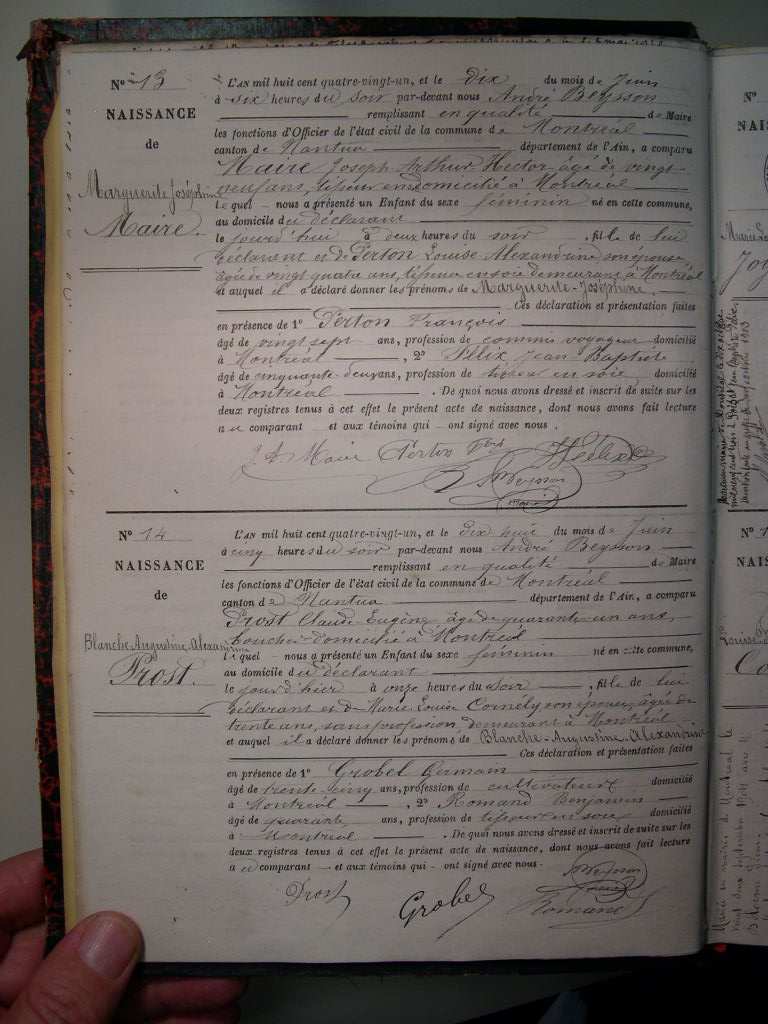 N° 13
NAISSANCE
de
Marguerite Joséphine
Maire.
L'AN mil huit cent quatre-vingt-un, et le dix du mois de Juin
à six heures du soir par-devant nous André Beysson
remplissant en qualité de Maire
les fonctions d'Officier de l'état civil de la commune de Montréal
canton de Nantua département de l'Ain, a comparu
Maire Joseph Arthur Hector âgé de vingt
neuf ans, tisseur en soie domicilié à Montréal
Lequel nous a présenté un Enfant du sexe féminin né en cette commune,
au domicile du déclarant
le jourd'hui à deux heures du soir, fille de lui
déclarant et de Perton Louise Alexandrine son épouse
âgée de vingt quatre ans, tisseur en soie demeurant à Montréal
et auquel il a déclaré donner les prénoms de Marguerite-Joséphine
Ces déclaration et présentation faites
en présence de 1° Perton François
âgé de vingt sept ans, profession de commis voyageur domicilié
à Montréal, 2° Félix Jean Baptiste
âgé de cinquante deux ans, profession de tisseur en soie domicilié
à Montréal. De quoi nous avons dressé et inscrit de suite sur les
deux registres tenus à cet effet le présent acte de naissance, dont nous avons fait lecture
au comparant et aux témoins qui ont signé avec nous.
J. A. Maire Perton Fçois J Félix
A Beysson
maire
N° 14
NAISSANCE
de
Blanche Augustine Alexandrine
Prost.
L'AN mil huit cent quatre-vingt-un, et le dix huit du mois de Juin
à cinq heures du soir par-devant nous André Beysson
remplissant en qualité de Maire
les fonctions d'Officier de l'état civil de la commune de Montréal
canton de Nantua département de l'Ain, a comparu
Prost Claude Eugène âgé de quarante un ans,
boucher domicilié à Montréal
Lequel nous a présenté un Enfant du sexe féminin né en cette commune,
au domicile du déclarant
le jour d'hier à onze heures du soir, fille de lui
déclarant et de Marie Louise Cornély son épouse, âgée de
trente ans, sans profession, demeurant à Montréal
et auquel il a déclaré donner les prénoms de Blanche-Augustine-Alexandrine
Ces déclaration et présentation faites
en présence de 1° Grobel Germain
âgé de trente cinq ans, profession de cultivateur domicilié
à Montréal, 2° Romand Benjamin
âgé de quarante ans, profession de tisseur en soie domicilié
à Montréal. De quoi nous avons dressé et inscrit de suite sur les
deux registres tenus à cet effet le présent acte de naissance, dont nous avons fait lecture
au comparant et aux témoins qui ont signé avec nous.
A Beysson
maire
Prost Grobel Romand